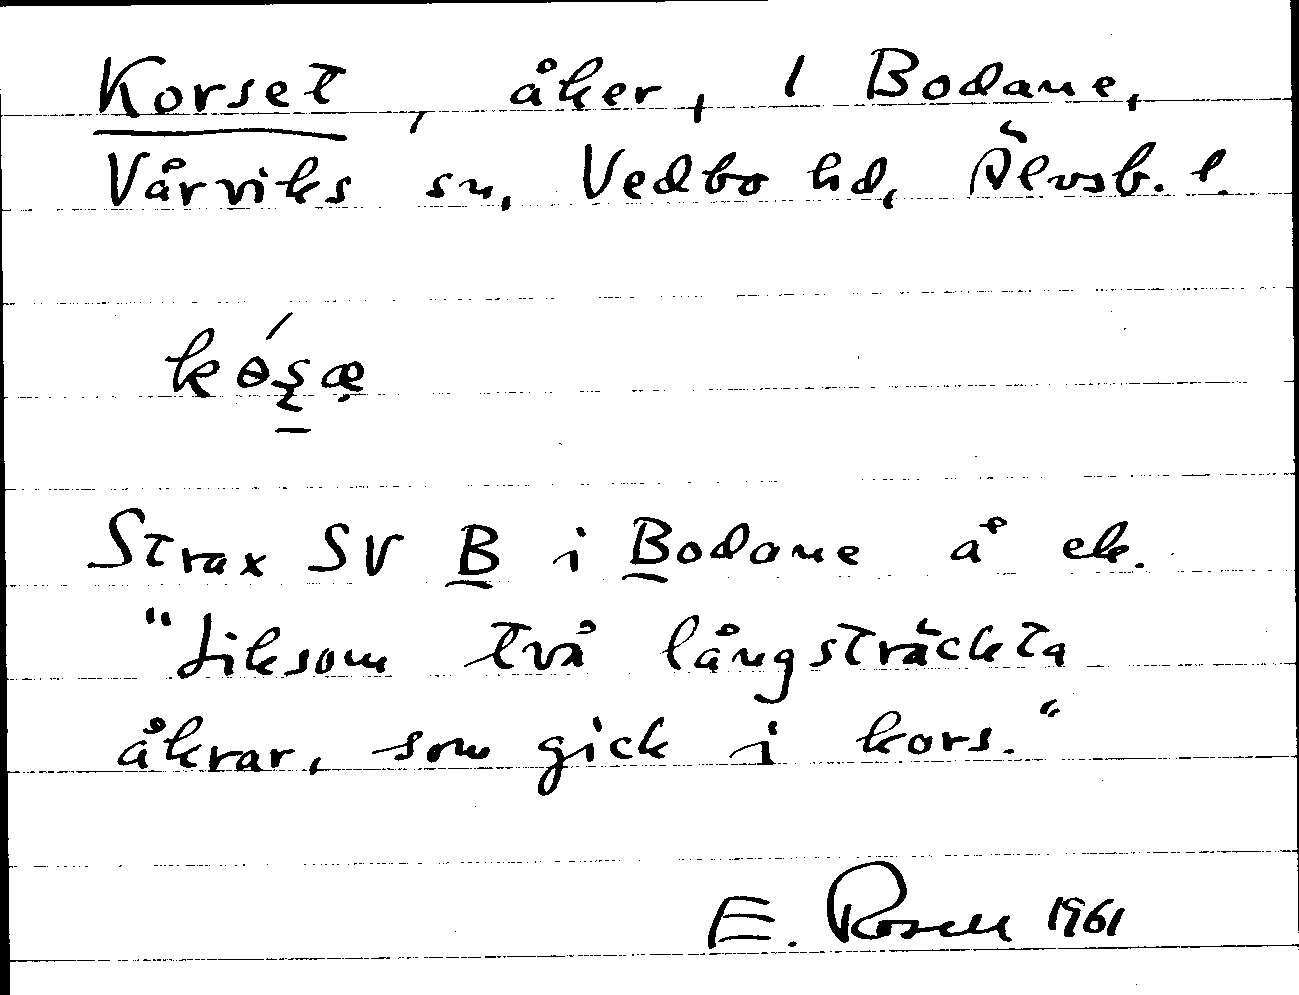 Korset, åker, 1 Bodane,
Vårviks sn, Vedbo hd, Älvsb. l.
kɵ́ʂæ̣
Strax SV B i Bodane å ek.
"Liksom två långsträckta
åkrar, som gick i kors."
E. Rosell 1961